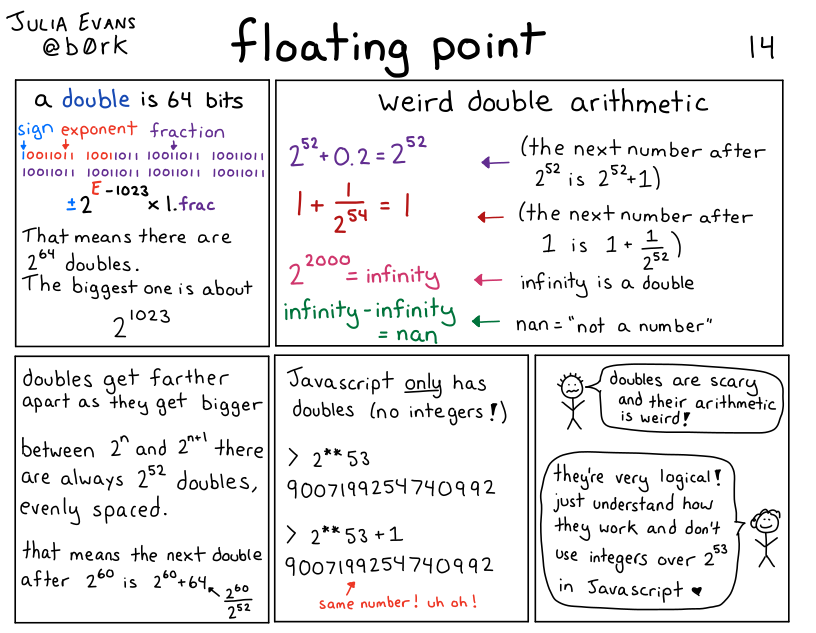 JULIA EVANS
@b0rk
floating point
14
a double is 64 bits
sign exponent fraction
10011011 10011011 10011011 10011011
10011011 10011011 10011011 10011011
± 2^(E-1023) × 1.frac
That means there are
2^64 doubles.
The biggest one is about
2^1023
weird double arithmetic
2^52 + 0.2 = 2^52
(the next number after
2^52 is 2^52+1)
1 + 1/2^54 = 1
(the next number after
1 is 1 + 1/2^52)
2^2000 = infinity
infinity is a double
infinity - infinity
= nan
nan = "not a number"
doubles get farther
apart as they get bigger
between 2^n and 2^(n+1) there
are always 2^52 doubles,
evenly spaced.
that means the next double
after 2^60 is 2^60+64
2^60/2^52
Javascript only has
doubles (no integers!)
> 2**53
9007199254740992
> 2**53+1
9007199254740992
same number! uh oh!
doubles are scary
and their arithmetic
is weird!
they're very logical!
just understand how
they work and don't
use integers over 2^53
in Javascript ♥